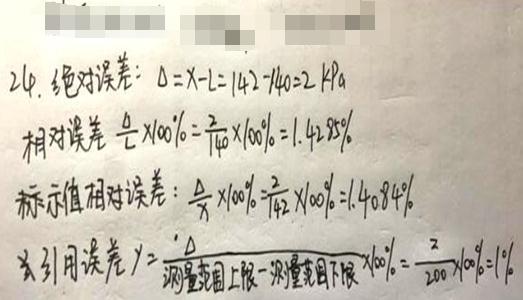 24. 绝对误差: Δ=X-L=142-140=2 kPa
相对误差 Δ/L ×100%=2/140 ×100%=1.4285%
标示值相对误差: Δ/X ×100%=2/142 ×100%=1.4084%
引用误差 γ=Δ/测量范围上限-测量范围下限 ×100%=2/200 ×100%=1%